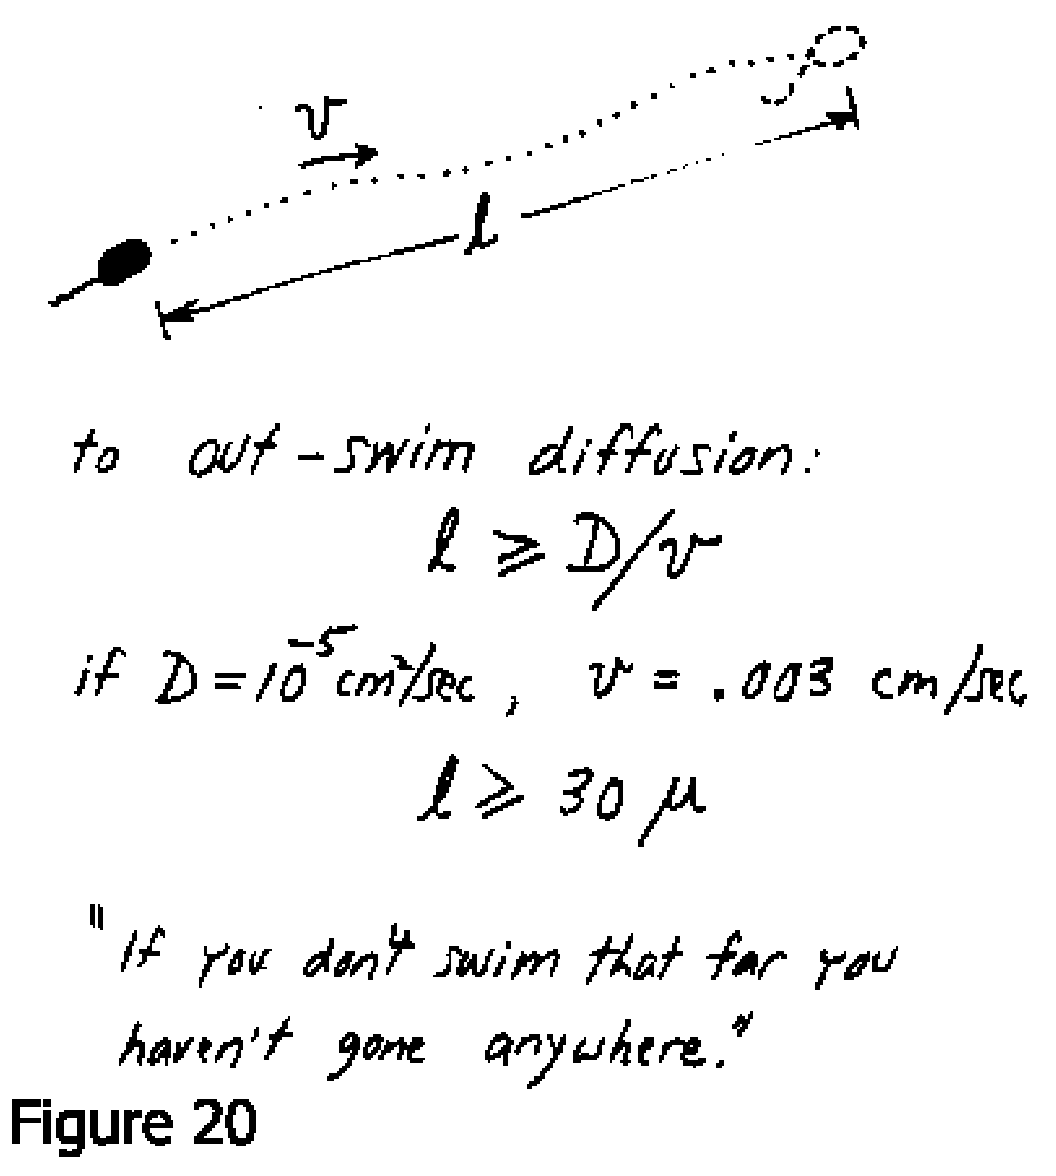 v
l
to out-swim diffusion:
l ≥ D/v
if D=10⁻⁵cm²/sec, v = .003 cm/sec
l ≥ 30 μ
"If you don't swim that far you
haven't gone anywhere."
Figure 20